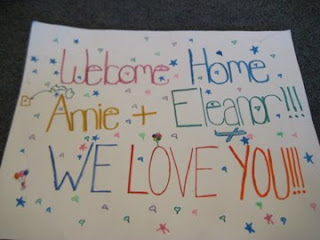 Welcome Home
Amie + Eleanor!!!
WE LOVE YOU!!!